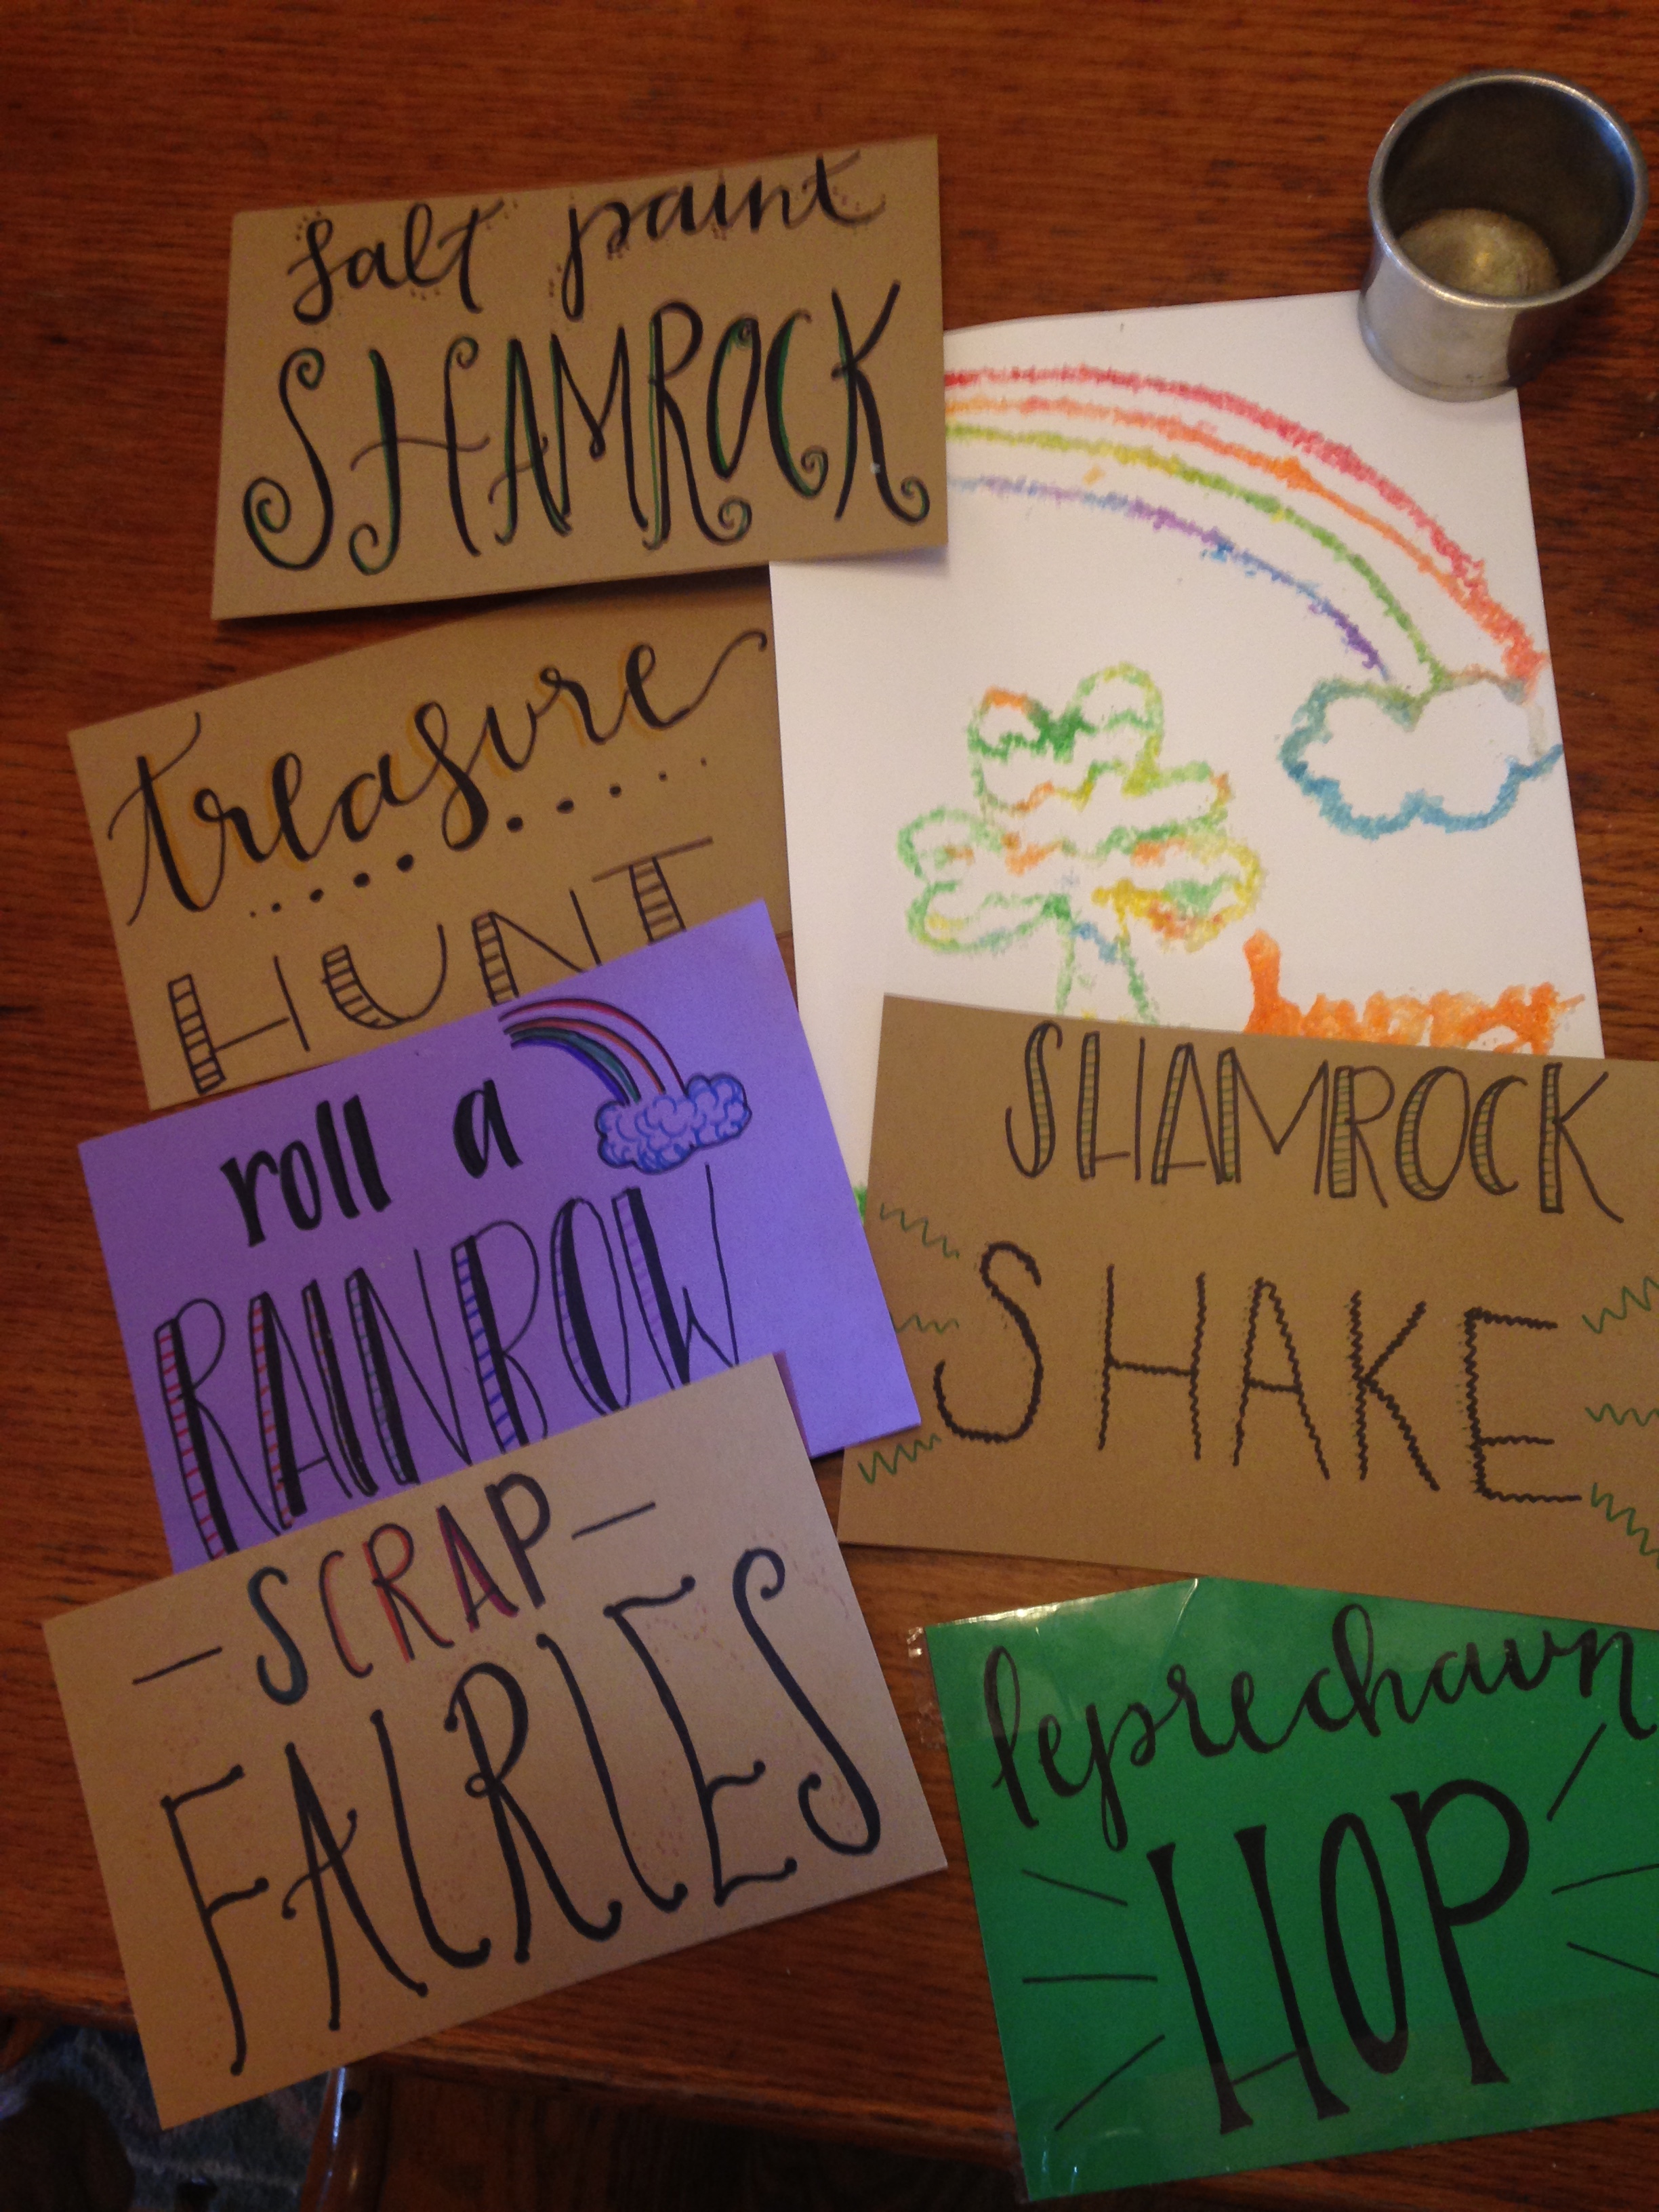 salt paint
SHAMROCK
treasure
HUNT
roll a
RAINBOW
SHAMROCK
SHAKE
-SCRAP-
FAIRIES
leprechaun
HOP